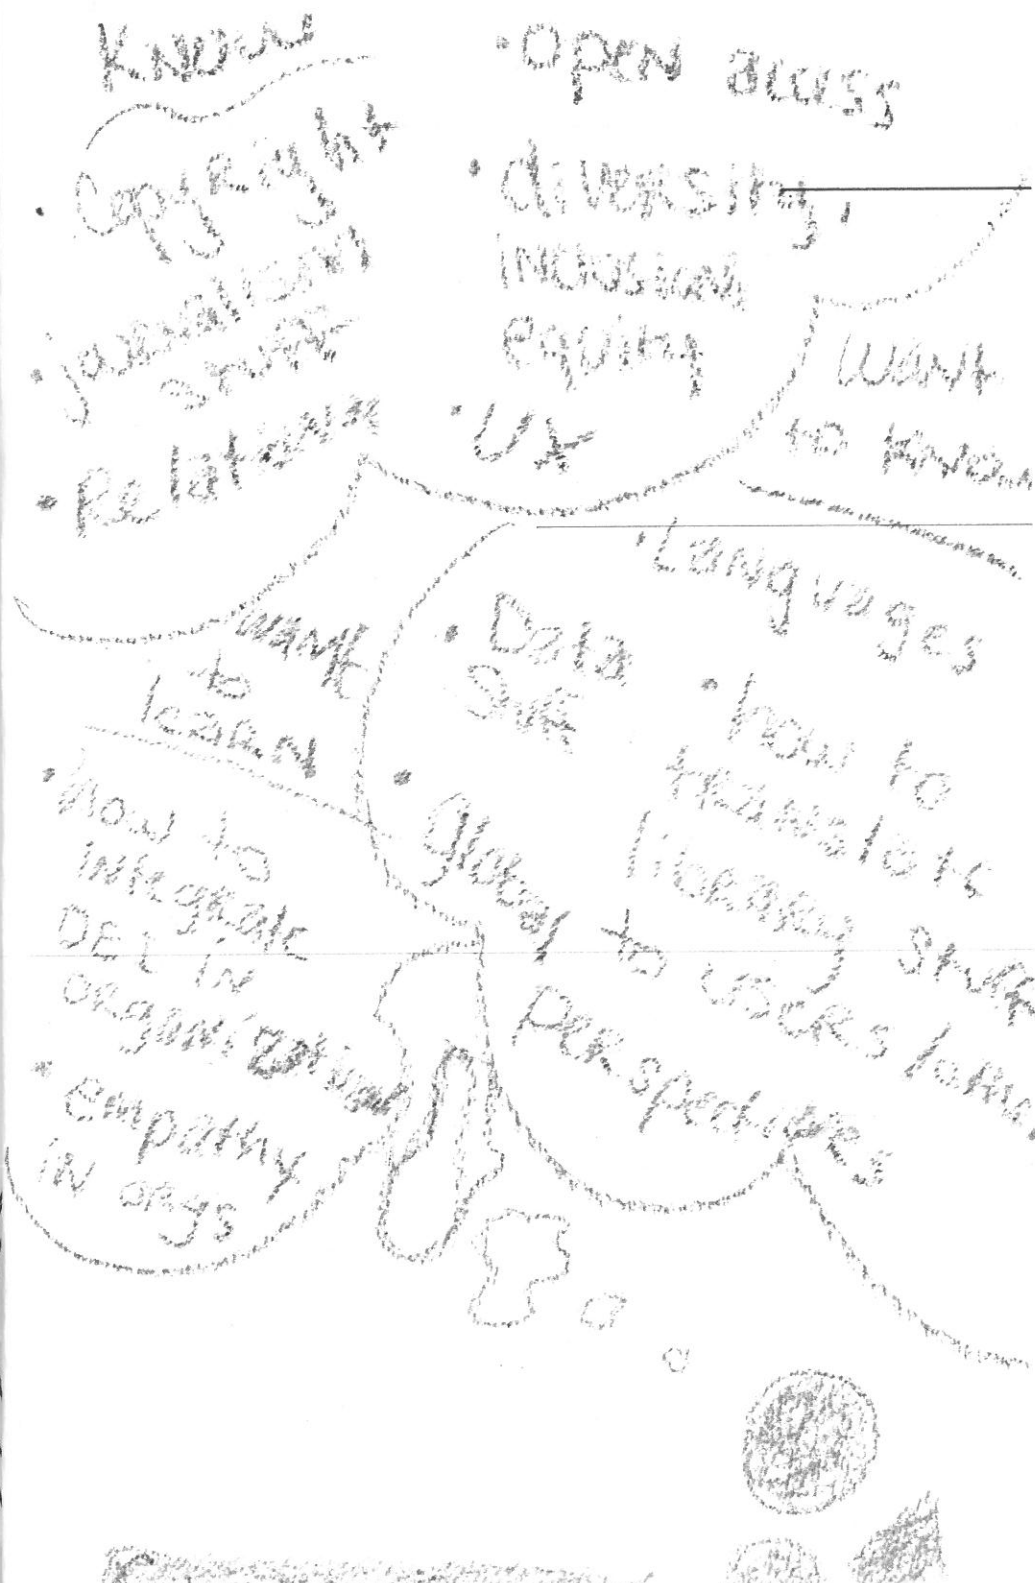 Know
• Copyright
• journalism
stuff
• Relations
• open access
• diversity,
inclusion
equity
• UX
Want
to know
• Languages
• Data
Stuff
• how to
translate
library stuff
to users
• Global
perspectives
want
to
learn
• how to
integrate
DEI in
organizations
• empathy
in orgs